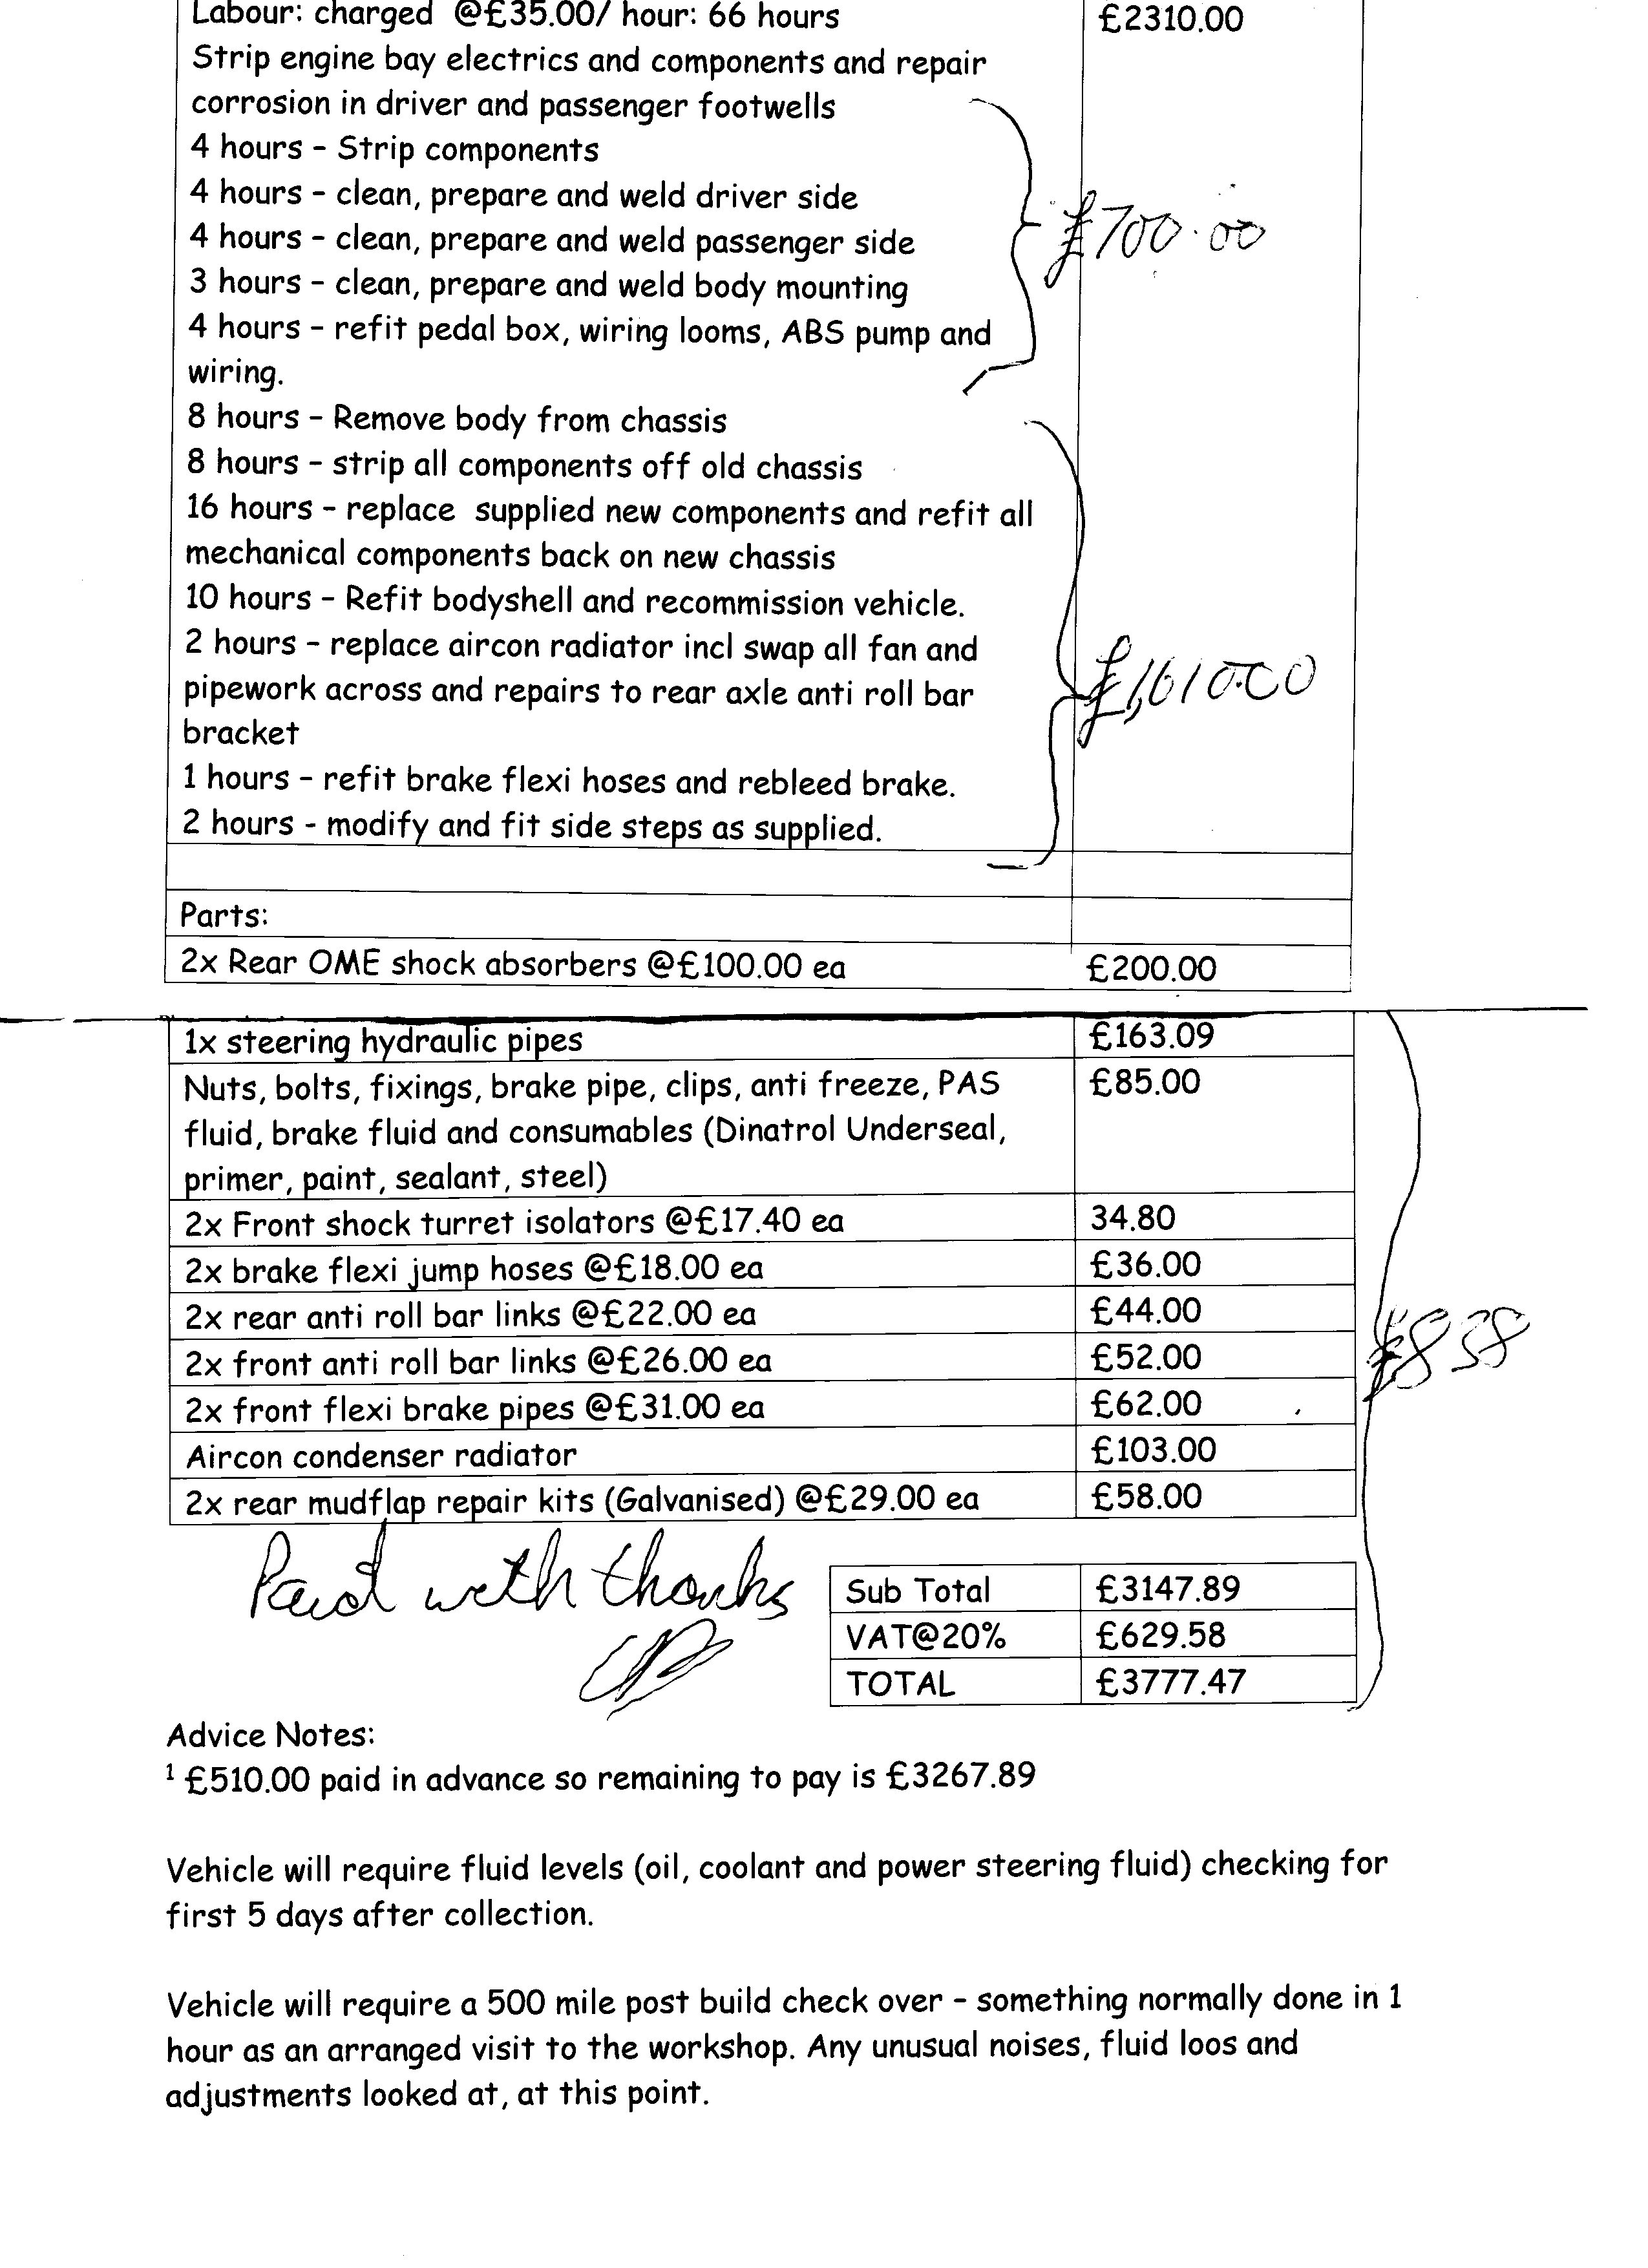 Labour: charged @£35.00/ hour: 66 hours £2310.00
Strip engine bay electrics and components and repair
corrosion in driver and passenger footwells
4 hours - Strip components
4 hours - clean, prepare and weld driver side
£700.00
4 hours - clean, prepare and weld passenger side
3 hours - clean, prepare and weld body mounting
4 hours - refit pedal box, wiring looms, ABS pump and
wiring.
8 hours - Remove body from chassis
8 hours - strip all components off old chassis
16 hours - replace supplied new components and refit all
mechanical components back on new chassis
10 hours - Refit bodyshell and recommission vehicle.
2 hours - replace aircon radiator incl swap all fan and
pipework across and repairs to rear axle anti roll bar
£1,610.00
bracket
1 hours - refit brake flexi hoses and rebleed brake.
2 hours - modify and fit side steps as supplied.
Parts:
2x Rear OME shock absorbers @£100.00 ea £200.00
1x steering hydraulic pipes £163.09
Nuts, bolts, fixings, brake pipe, clips, anti freeze, PAS £85.00
fluid, brake fluid and consumables (Dinatrol Underseal,
primer, paint, sealant, steel)
2x Front shock turret isolators @£17.40 ea 34.80
2x brake flexi jump hoses @£18.00 ea £36.00
2x rear anti roll bar links @£22.00 ea £44.00
2x front anti roll bar links @£26.00 ea £52.00
£838
2x front flexi brake pipes @£31.00 ea £62.00
Aircon condenser radiator £103.00
2x rear mudflap repair kits (Galvanised) @£29.00 ea £58.00
Paid with thanks
Sub Total £3147.89
VAT@20% £629.58
TOTAL £3777.47
Advice Notes:
1 £510.00 paid in advance so remaining to pay is £3267.89
Vehicle will require fluid levels (oil, coolant and power steering fluid) checking for
first 5 days after collection.
Vehicle will require a 500 mile post build check over - something normally done in 1
hour as an arranged visit to the workshop. Any unusual noises, fluid loos and
adjustments looked at, at this point.